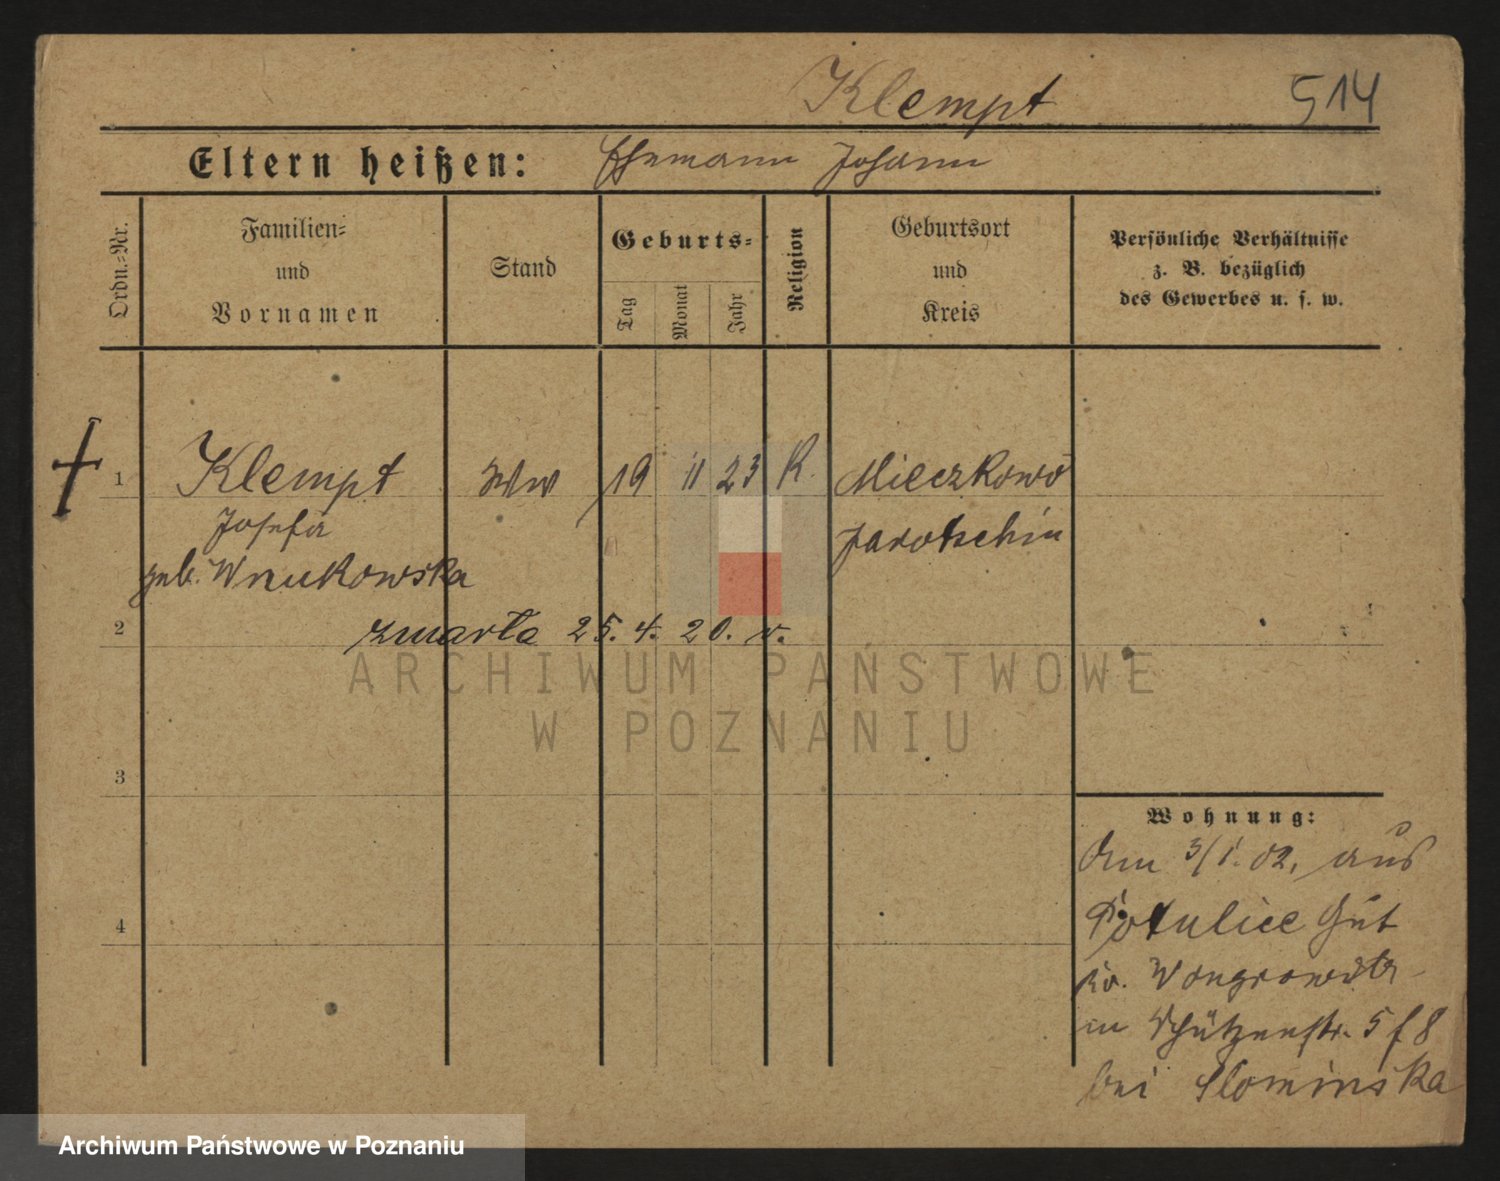 Klempt 514
Eltern heißen: Ehemann Johann
Ordn.-Nr.
Familien-
und
Vornamen
Stand
Geburts-
Tag Monat Jahr
Religion
Geburtsort
und
Kreis
Persönliche Verhältnisse
z. B. bezüglich
des Gewerbes u. s. w.
1 Klempt Ww 19 11 23 K. Mieczkowo
Josefa Jarotschin
geb. Wnukowska
2 zmarła 25. 4. 20. r.
3
4
Wohnung:
Am 3/1. 02. aus
Potulice Gut
Kr. Wongrowitz
in Schützenstr. 5 f 8
bei Slominska
ARCHIWUM PAŃSTWOWE
W POZNANIU
Archiwum Państwowe w Poznaniu